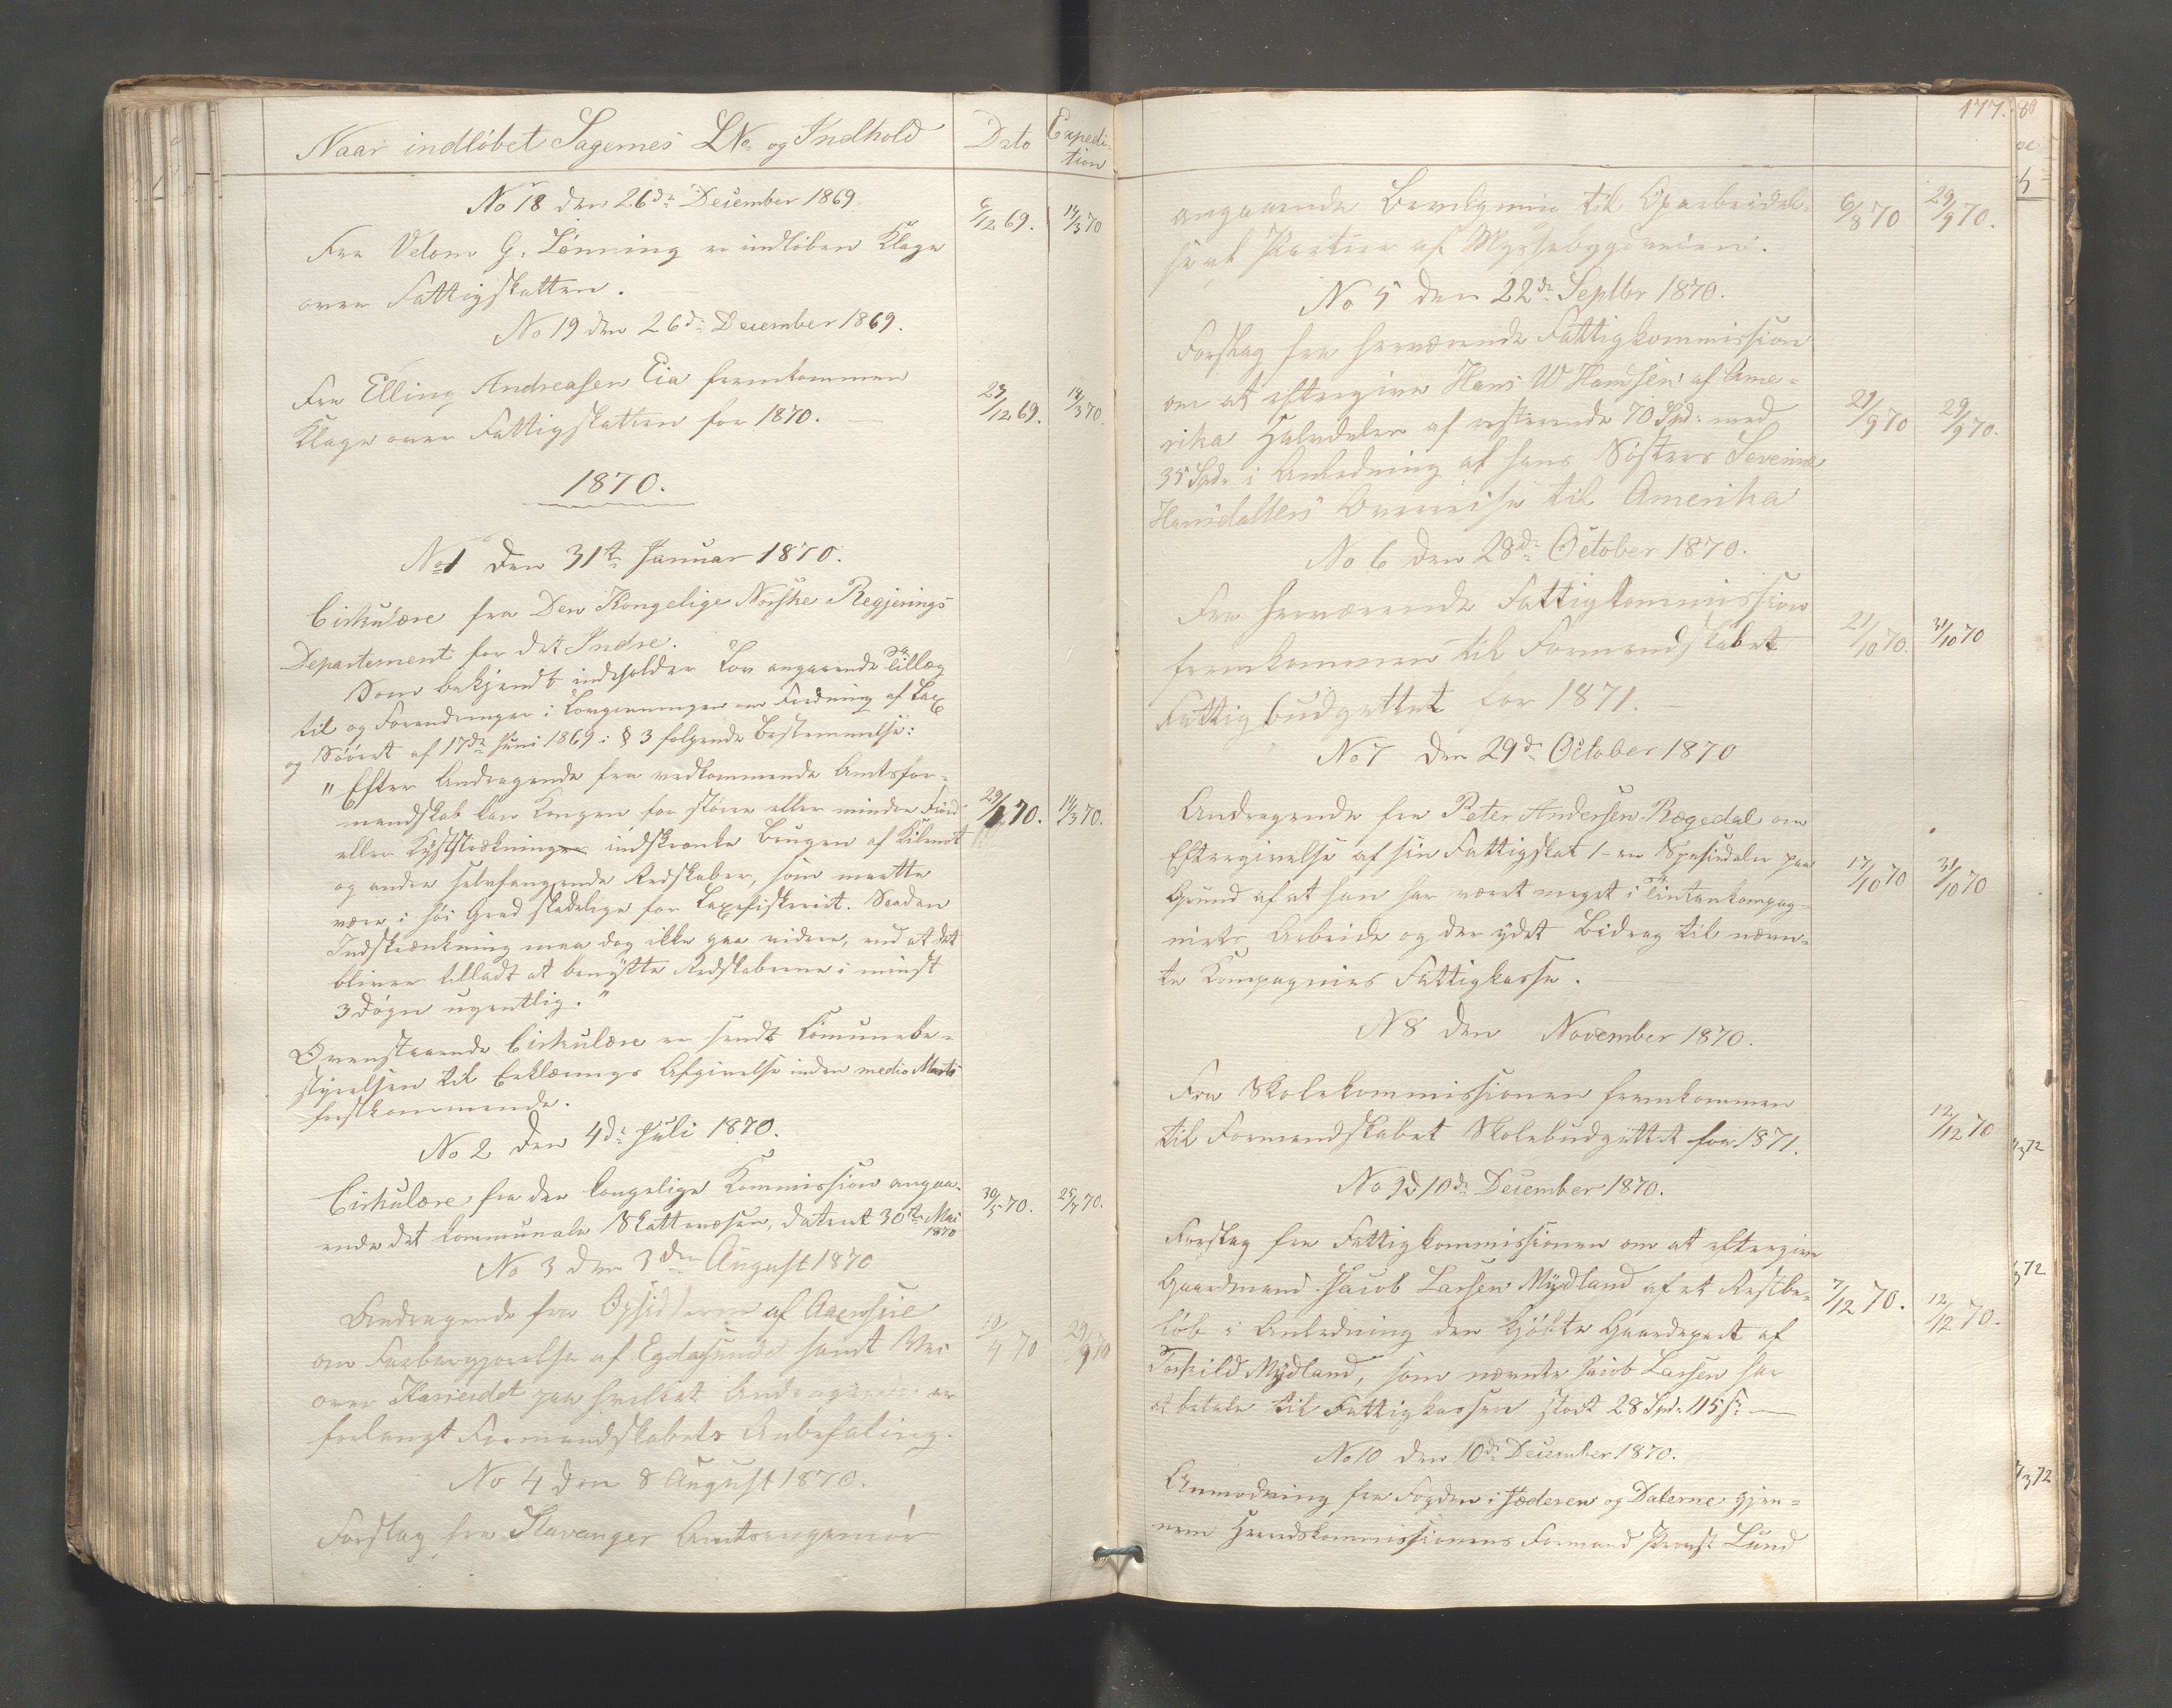 Naar indløbet Sagernes LNo. og Indhold
Dato
Expedi-
tion
No 18 den 26de December 1869
Fra Velom G. Lönning er indløben Klage
over Fattigskatten.
6/12 69.
14/3 70
No 19 den 26de December 1869.
Fra Elling Andreasen Eia fremkommen
Klage over Fattigskatten for 1870.
23/12 69.
14/3 70.
1870.
No 1 den 31te Januar 1870.
Cirkulære fra Den Kongelige Norske Regjerings
Departement for det Indre.
Som bekjendt indeholder Lov angaaende Tillæg
til og Forandringer i Lovgivningen om Fredning af Lax
og Søört af 17de Juni 1869 i § 3 følgende Bestemmelse:
"Efter Andragende fra vedkommende Amtsfor-
mandskab kan Kongen for større eller mindre Fjord
eller Kyststrækninger indskrænke Brugen af Kilenot
og andre selvfangende Redskaber, som maatte
være i høi Grad skadelige for Laxefiskeriet. Saadan
Indskrænkning maa dog ikke gaa videre, end at det
bliver tilladt at benytte Redskaberne i mindst
3 Døgn ugentlig."
29/1 70.
14/3 70.
Ovenstaaende Cirkulære er sendt Komunebe-
styrelsen til Erklærings Afgivelse inden medio Marts
førstkommende.
No 2 den 4de Juli 1870.
Cirkulære fra den kongelige Kommission angaa-
ende det kommunale Skattevæsen, dateret 30te Mai
1870
30/5 70.
25/7 70.
No 3 den 3die August 1870
Andragende fra Opsidderne af Aaensire
om Farbargjørelse af Egdasunde samt Vei
over Karieidet paa hvilket Andragende er
forlangt Formandskabets Anbefaling.
10/4 70
29/9 70
No 4 den 8 August 1870.
Forslag fra Stavanger Amtsingeniör
177.
angaaende Bevilgning til Oparbeidel-
se af Partier af Myssebygdveien.
6/8 70
29/9 70.
No 5 den 22de Septbr 1870.
Forslag fra herværende Fattigkommission
om at eftergive Hans W Handsen af Ame-
rika Halvdelen af resterende 70 Spd. med
35 Spd. i Anledning af hans Søsters Severine
Hansdatters Overreise til Amerika
21/9 70
29/9 70.
No 6 den 28de October 1870.
Fra herværende Fattigkommission
fremkommen til Formandskabet
Fattigbudgettet for 1871.
21/10 70.
31/10 70
No 7 den 29de October 1870
Andragende fra Peter Andersen Rægedal om
Eftergivelse af sin Fattigskat 1 - en Speciedaler paa
Grund af at han har været meget i Tintankompag-
niets Arbeide og der ydet Bidrag til nævn-
te Kompagnies Fattigkasse.
17/10 70
31/10 70
N 8 den November 1870.
Fra Skolekommissionen fremkommen
til Formandskabet Skolebudgettet for 1871.
12/12 70
No 9 d 10de December 1870.
Forslag fra Fattigkommissionen om at eftergive
Gaardmand Jacob Larsen Mydland af et Restbe-
løb i Anledning den kjøbte Gaardepart af
Torkild Mydland, som nævnte Jacob Larsen har
at betale til Fattigkassen stort 28 Spd. 115 s
7/12 70.
12/12 70.
No 10 den 10de December 1870.
Anmodning fra Fogden i Jæderen og Dalerne gjen-
nem Herredskommissionens Formand Provst Lund